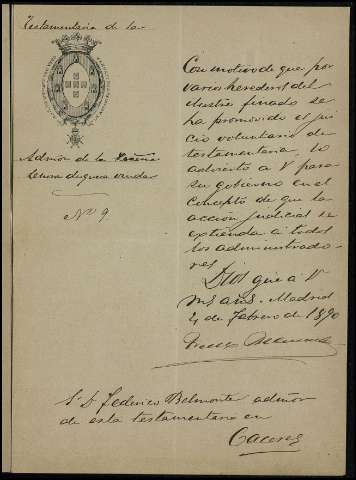 Testamentaria de la
Admon de la
Nº 9
Con motivo de que por
varios hereds del
Ilustre finado se
ha promovido el jui
cio voluntario de
testamentaria, lo
advierto a V para
su gobierno en el
concepto de que la
acción judicial se
extienda á todos
los administrado-
res.
Dios gue á V
ms ans. Madrid
4 de Febrero de 1890
Sr D. Federico Belmonte admor
de esta testamentaria en
Caceres